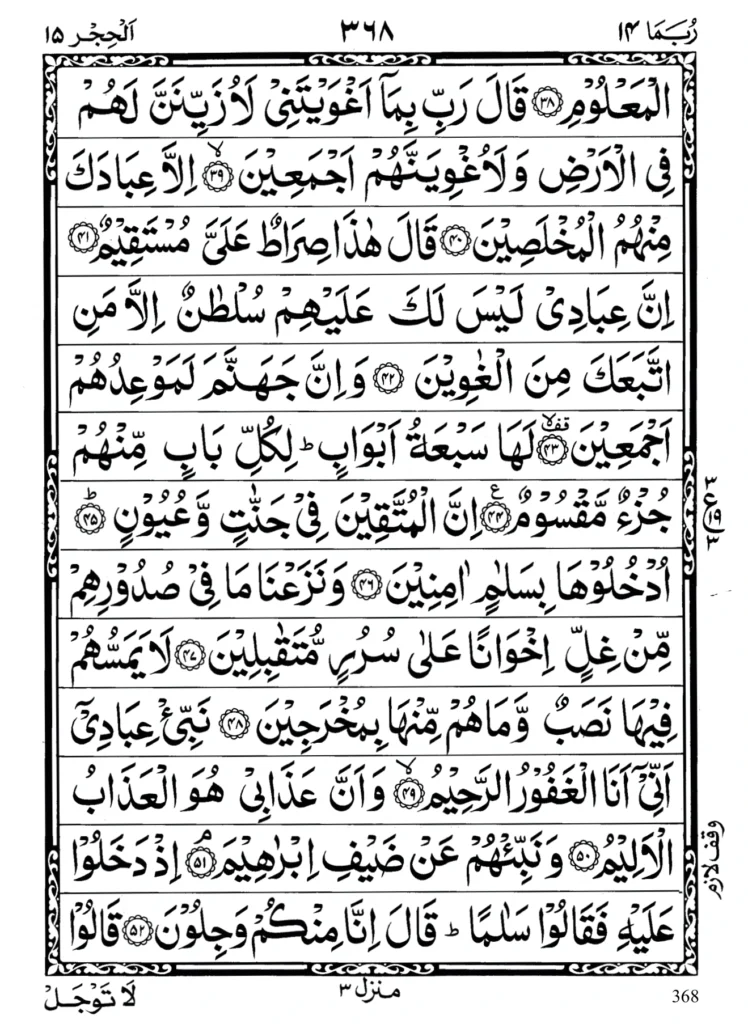 رُبَمَا ١٤ ٣٦٨ اَلْحِجْر ١٥
الْمَعْلُوْمِ ﴿٣٨﴾ قَالَ رَبِّ بِمَاۤ اَغْوَيْتَنِيْ لَاُزَيِّنَنَّ لَهُمْ
فِي الْاَرْضِ وَلَاُغْوِيَنَّهُمْ اَجْمَعِيْنَ ﴿٣٩﴾ ۙ اِلَّا عِبَادَكَ
مِنْهُمُ الْمُخْلَصِيْنَ ﴿٤٠﴾ قَالَ هٰذَا صِرَاطٌ عَلَيَّ مُسْتَقِيْمٌ ﴿٤١﴾
اِنَّ عِبَادِيْ لَيْسَ لَكَ عَلَيْهِمْ سُلْطٰنٌ اِلَّا مَنِ
اتَّبَعَكَ مِنَ الْغٰوِيْنَ ﴿٤٢﴾ وَاِنَّ جَهَنَّمَ لَمَوْعِدُهُمْ
اَجْمَعِيْنَ ﴿٤٣﴾ قف ۙ لَهَا سَبْعَةُ اَبْوَابٍ ؕ لِكُلِّ بَابٍ مِّنْهُمْ
جُزْءٌ مَّقْسُوْمٌ ﴿٤٤﴾ ع اِنَّ الْمُتَّقِيْنَ فِيْ جَنّٰتٍ وَّعُيُوْنٍ ﴿٤٥﴾ ؕ
٣ ع ١٩ ٣
اُدْخُلُوْهَا بِسَلٰمٍ اٰمِنِيْنَ ﴿٤٦﴾ وَنَزَعْنَا مَا فِيْ صُدُوْرِهِمْ
مِّنْ غِلٍّ اِخْوَانًا عَلٰى سُرُرٍ مُّتَقٰبِلِيْنَ ﴿٤٧﴾ لَا يَمَسُّهُمْ
فِيْهَا نَصَبٌ وَّمَا هُمْ مِّنْهَا بِمُخْرَجِيْنَ ﴿٤٨﴾ نَبِّئْ عِبَادِيْۤ
اَنِّيْۤ اَنَا الْغَفُوْرُ الرَّحِيْمُ ﴿٤٩﴾ ۙ وَاَنَّ عَذَابِيْ هُوَ الْعَذَابُ
الْاَلِيْمُ ﴿٥٠﴾ وَنَبِّئْهُمْ عَنْ ضَيْفِ اِبْرٰهِيْمَ ﴿٥١﴾ ۘ اِذْ دَخَلُوْا
وقف لازم
عَلَيْهِ فَقَالُوْا سَلٰمًا ؕ قَالَ اِنَّا مِنْكُمْ وَجِلُوْنَ ﴿٥٢﴾ قَالُوْا
368 منزل ٣ لَا تَوْجَلْ